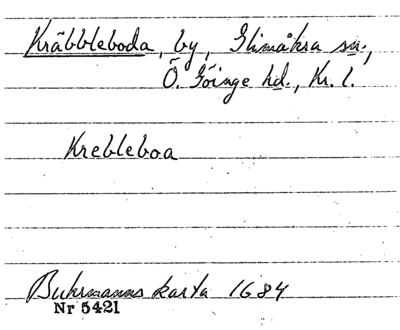 Kräbbleboda, by, Glimåkra sn.,
Ö. Göinge hd., Kr. l.
Krebleboa
Buhrmanns karta 1684
Nr 5421